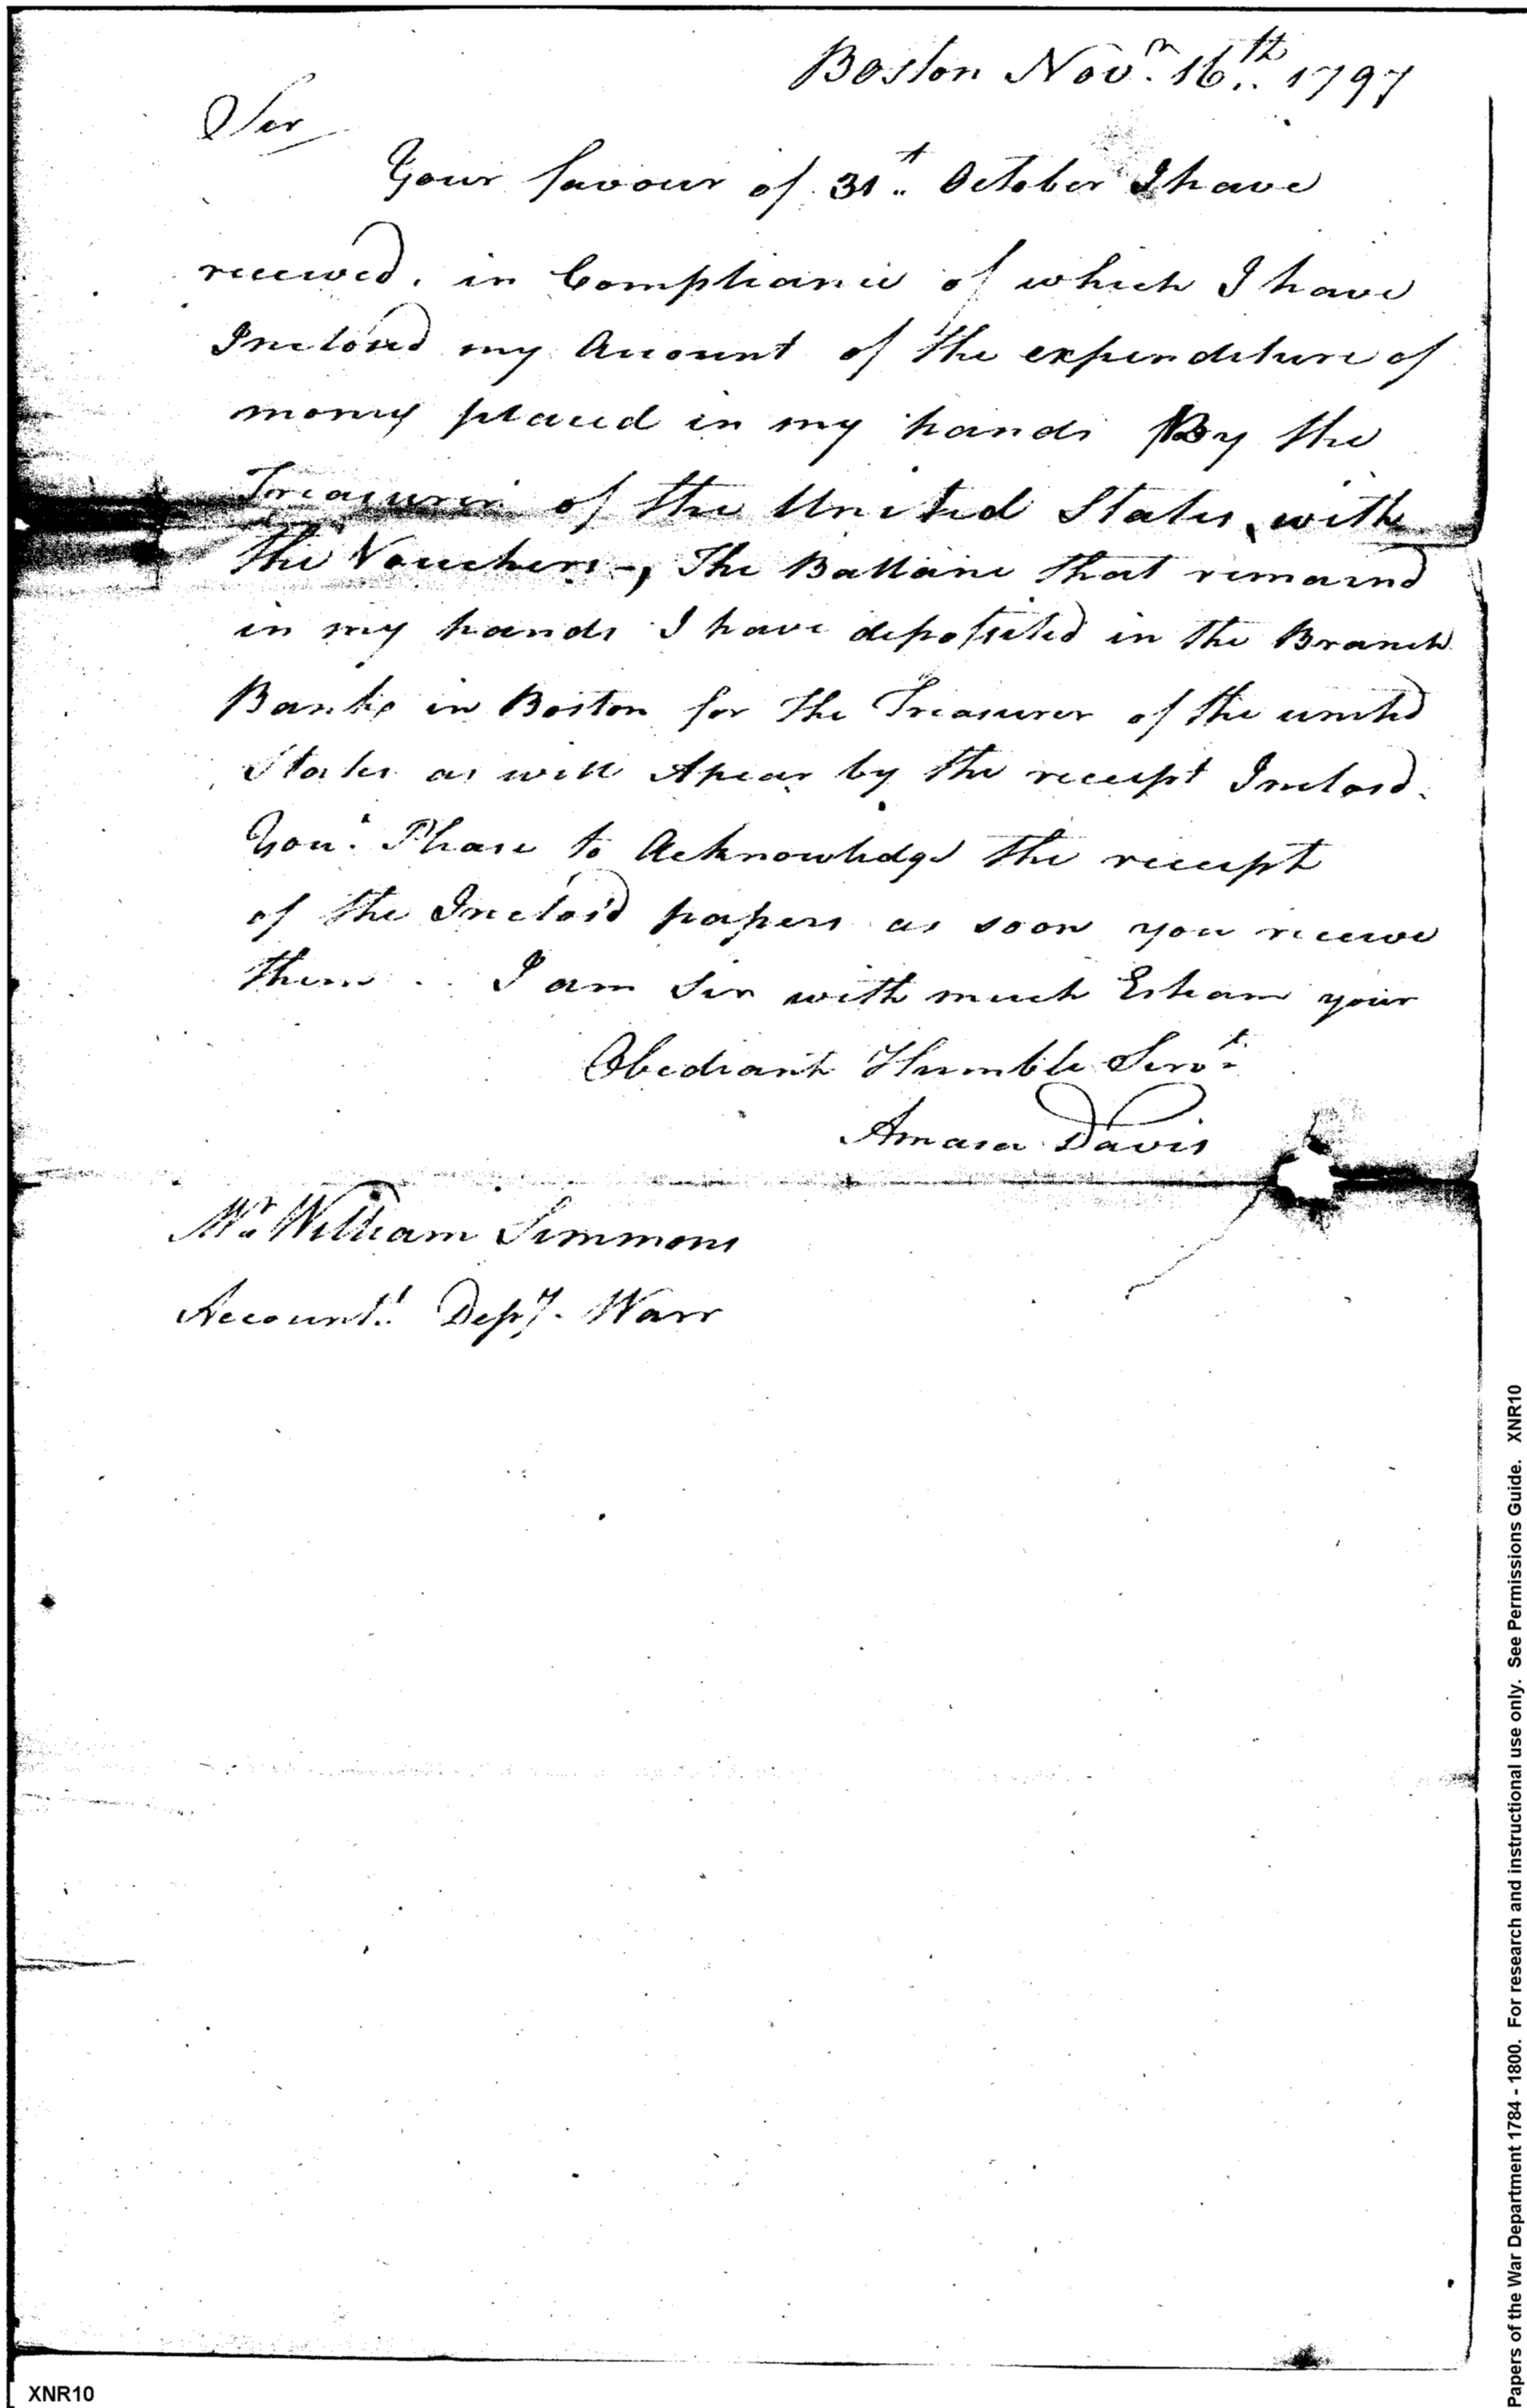 Boston Novr. 16th 1797
Sir
Your favour of 31t October I have
received, in Compliance of which I have
Inclosed my Account of the expenditure of
money placed in my hands By the
Treasurer of the United States, with
the Vouchers -, The Ballance that remaind
in my hands I have deposited in the Branch
Bank in Boston for the Treasurer of the united
States as will Apear by the receipt Inclosd.
You. Please to Acknowledge the receipt
of the Inclosd papers as soon you receive
them. I am Sir with much Esteam your
Obediant Humble Servt.
Amasa Davis
Mr. William Simmons
Accountt. Dept. Warr
XNR10
Papers of the War Department 1784 - 1800. For research and instructional use only. See Permissions Guide. XNR10